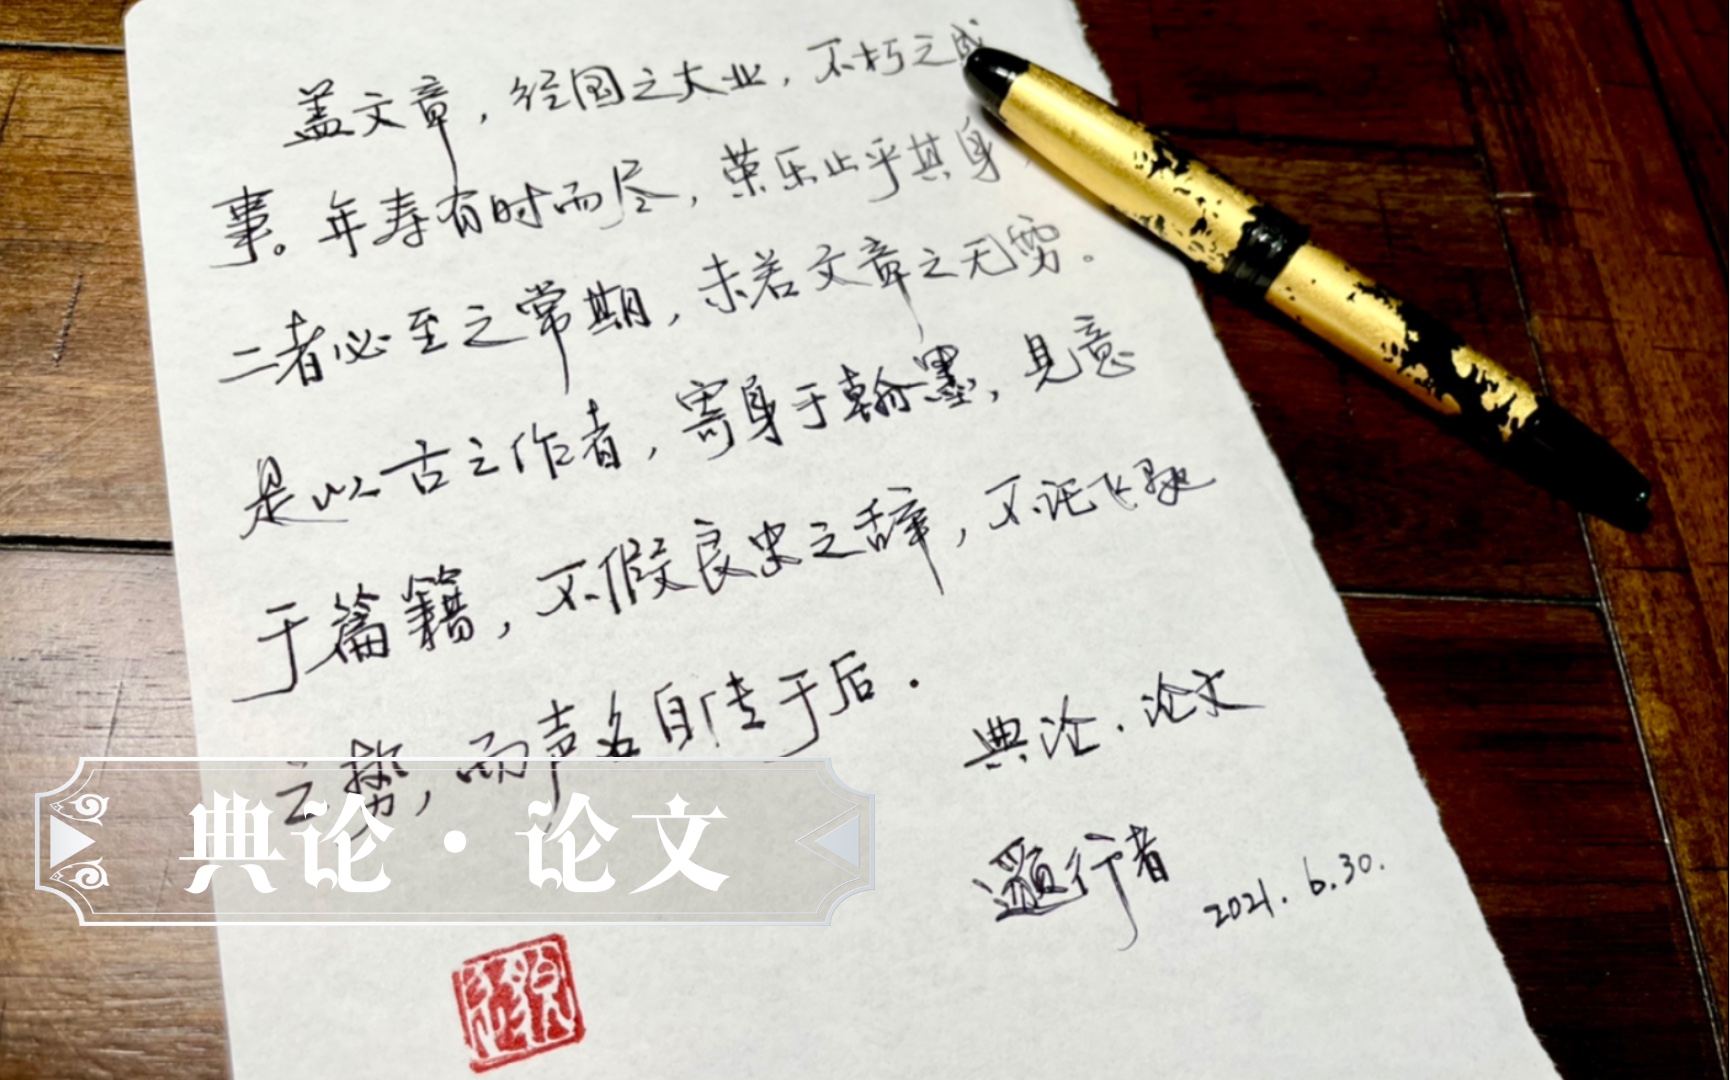 盖文章，经国之大业，不朽之盛
事。年寿有时而尽，荣乐止乎其身，
二者必至之常期，未若文章之无穷。
是以古之作者，寄身于翰墨，见意
于篇籍，不假良史之辞，不托飞驰
之势，而声名自传于后.
典论·论文
行者
2021.6.30.
典论·论文